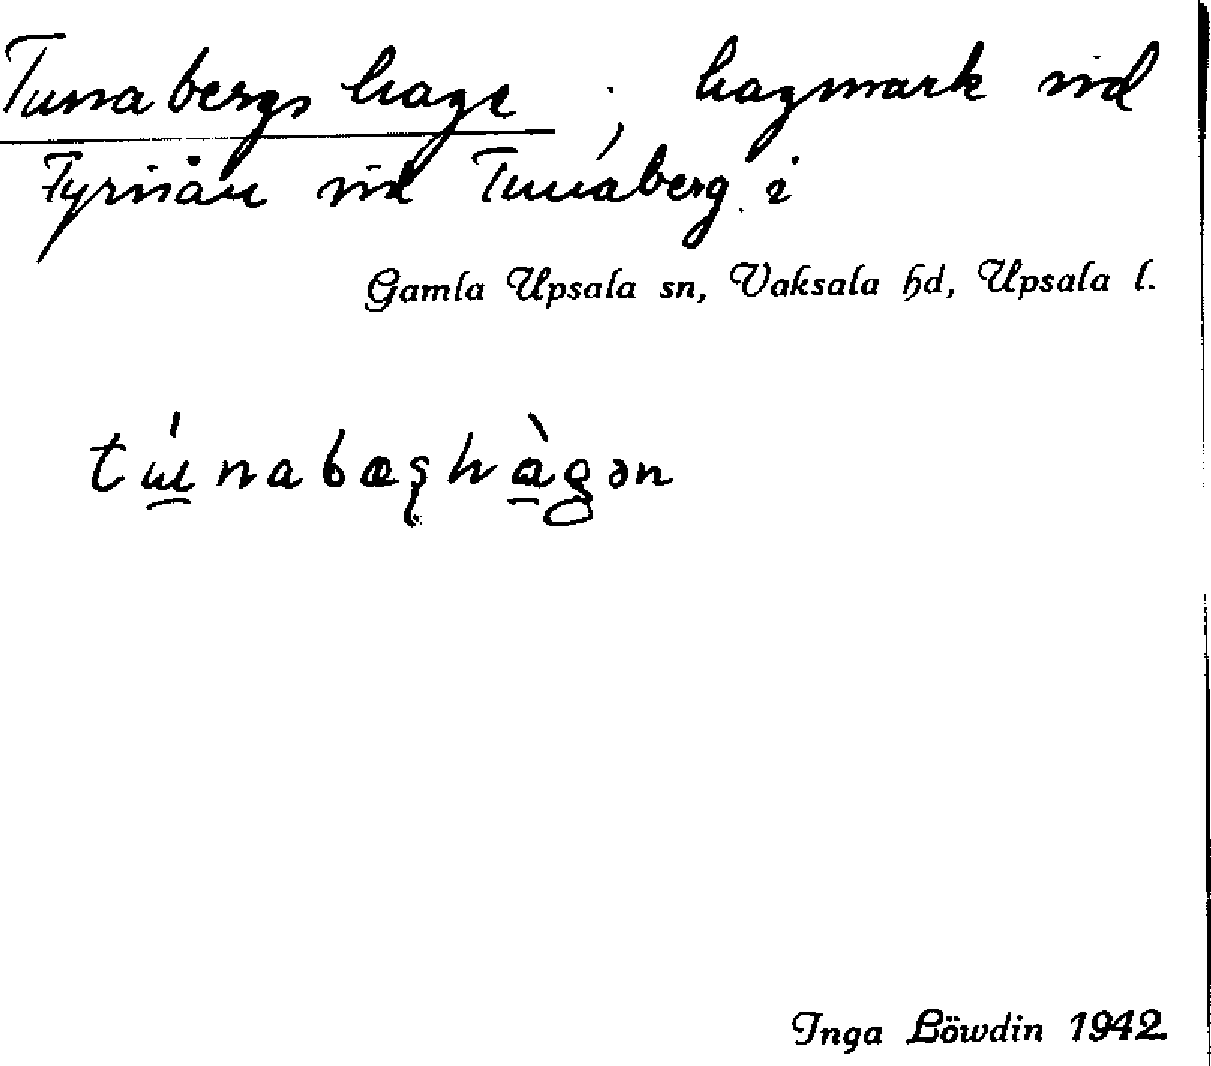 Tunabergs hage, hagmark vid
Fyrisån vid Tunaberg i
Gamla Upsala sn, Vaksala hd, Upsala l.
tɯ́nabæʂhàgən
Inga Löwdin 1942